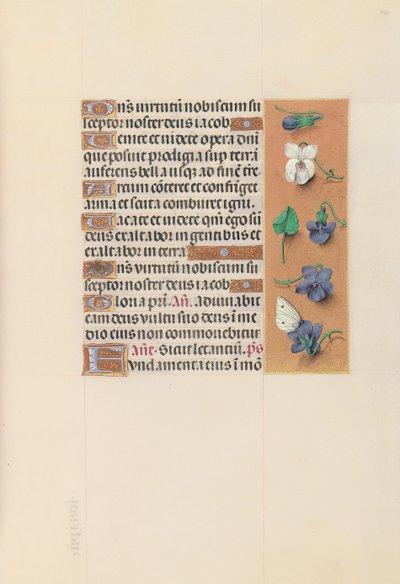 Dn̄s virtutū nobiscum su
sceptor noster deus iacob
Venite et videte opera dn̄i
que posuit prodigia sup terrā
auferens bella usq; ad finē tre
Arcum cōteret et confriget
arma et scuta comburet igni.
Vacate et videte qm̄ ego sū
deus exaltabor in gentibus et
exaltabor in terra
Dn̄s virtutū nobiscum su
sceptor noster deus iacob
Gloria pr̄i. An̄. Adiuvabit
eam deus vultu suo deus ī me
dio eius non commovebitur
Añt. Sicut letantiū. p̄s
Fundamenta eius ī mō